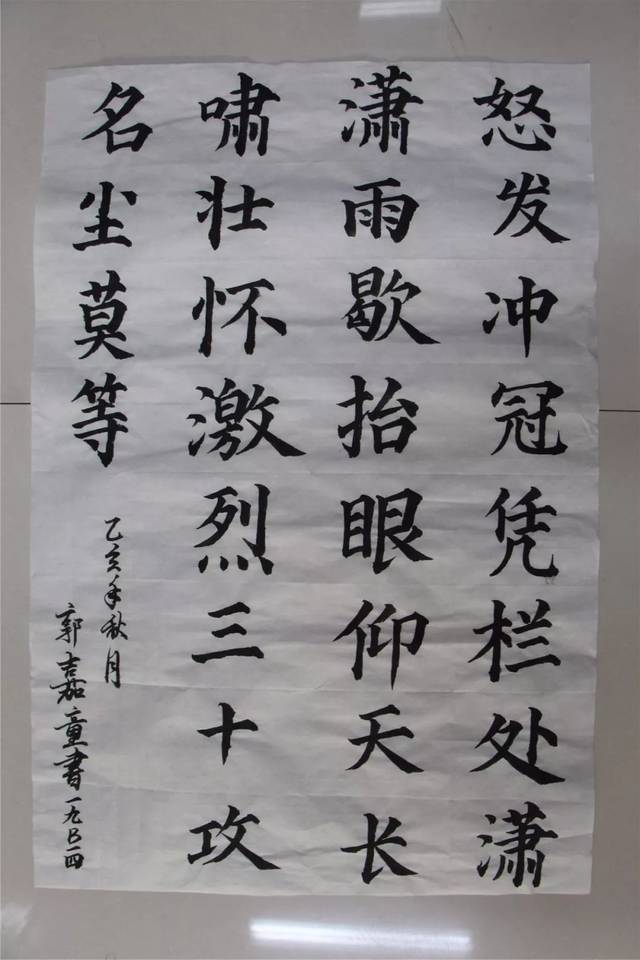 怒发冲冠凭栏处潇
潇雨歇抬眼仰天长
啸壮怀激烈三十攻
名尘莫等
乙亥年秋月
郭嘉童書一九五四